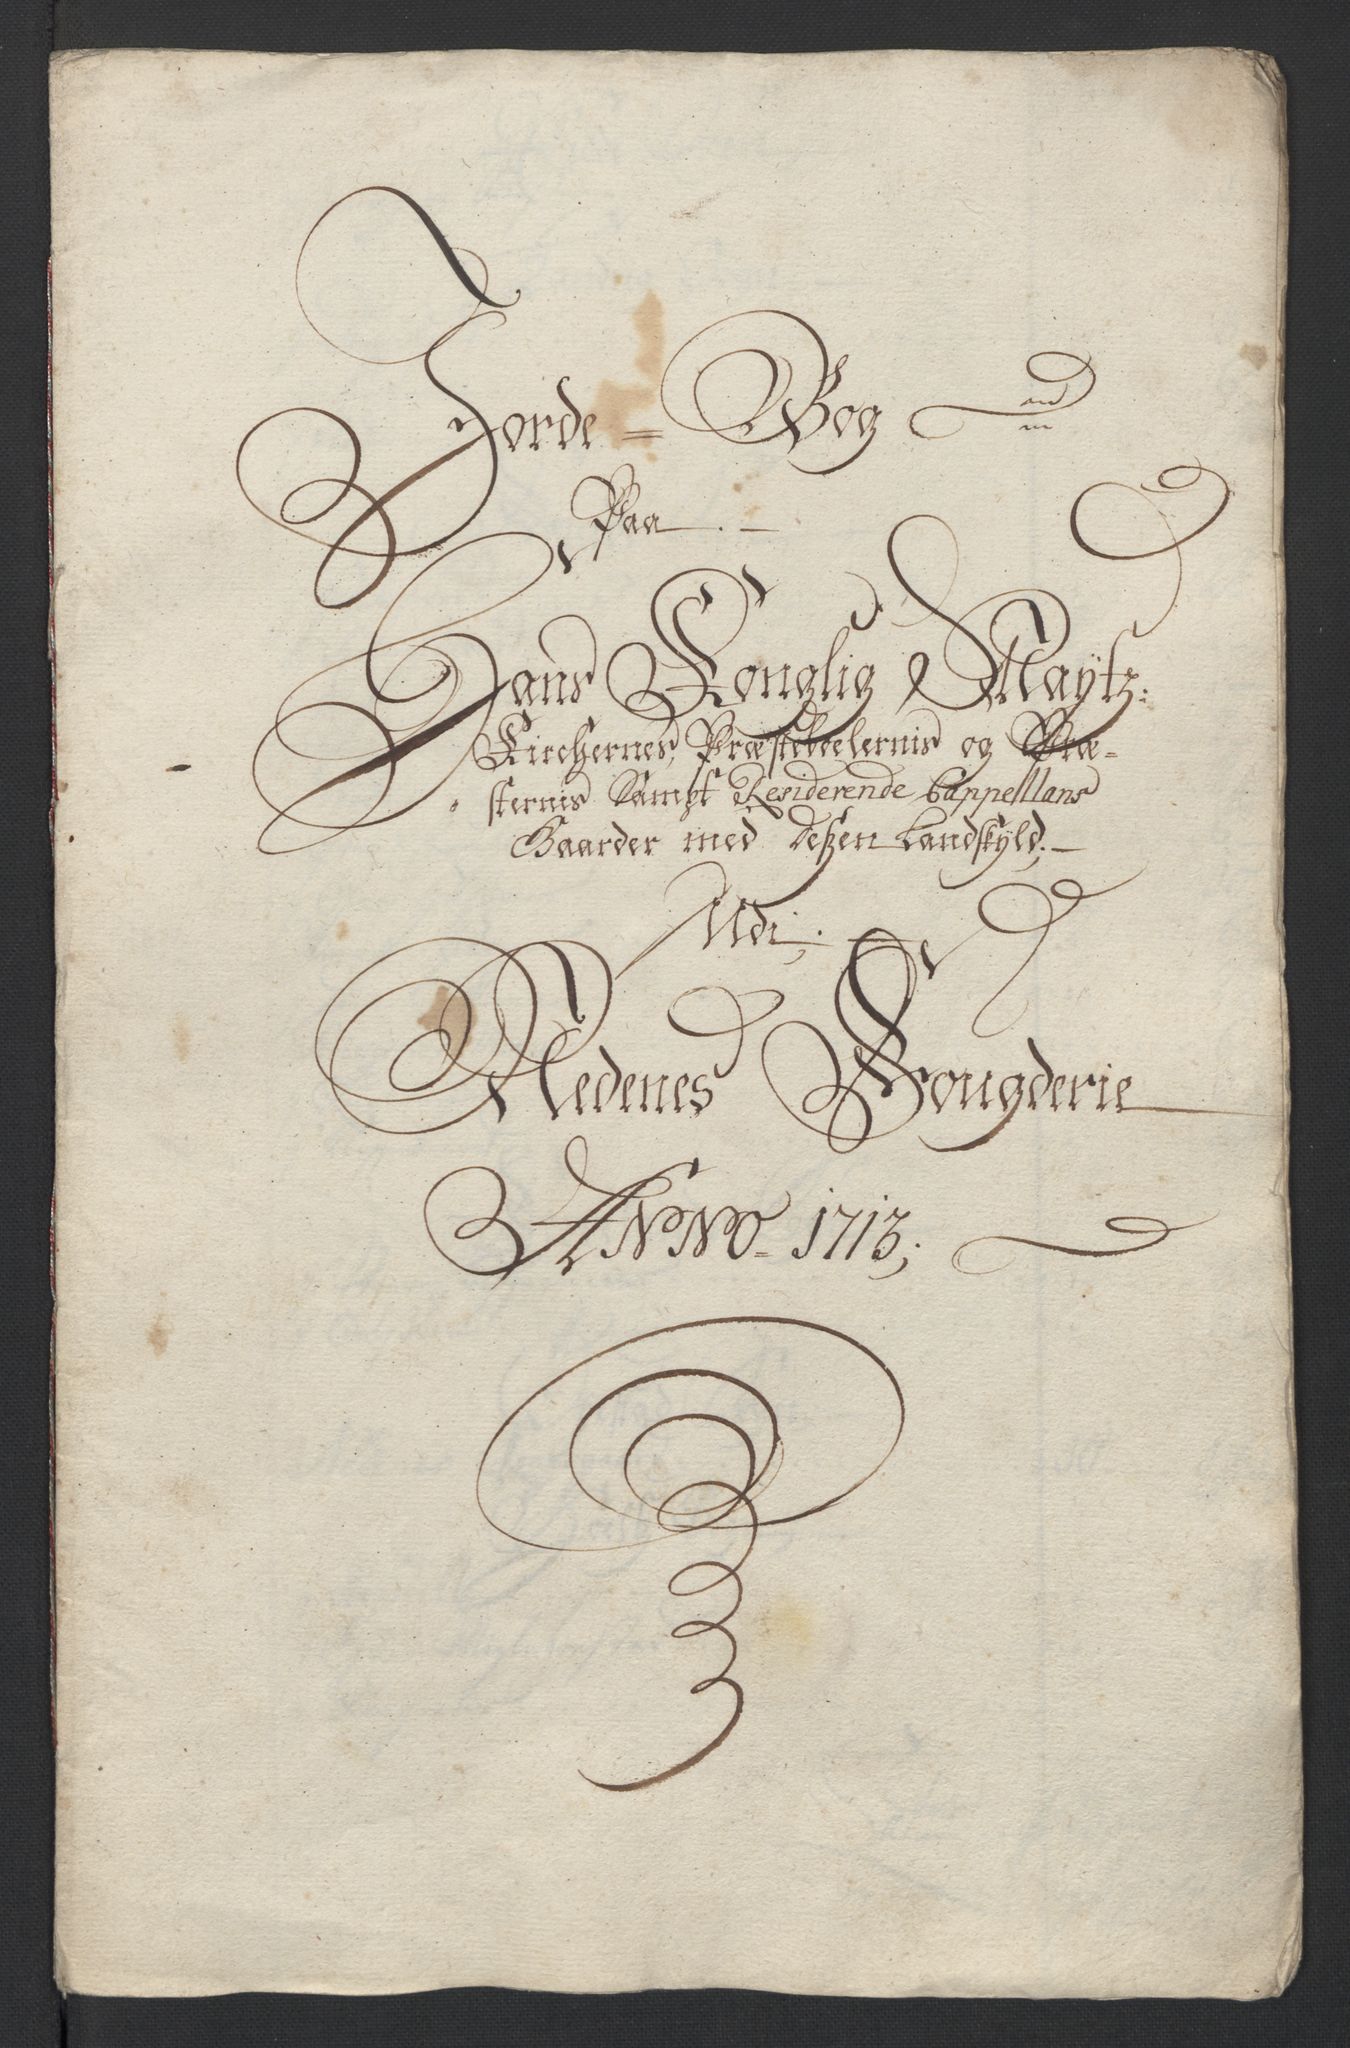 Jorde = Bog
Paa
Hans Konglig Maÿtz:
Kirchernes, Præstebolernis og Præ-
sternis Sampt Residerende Cappellans
Gaarder med deßen Landskÿld;
Udi;
Nedenes Fougderie
ANNO 1713;